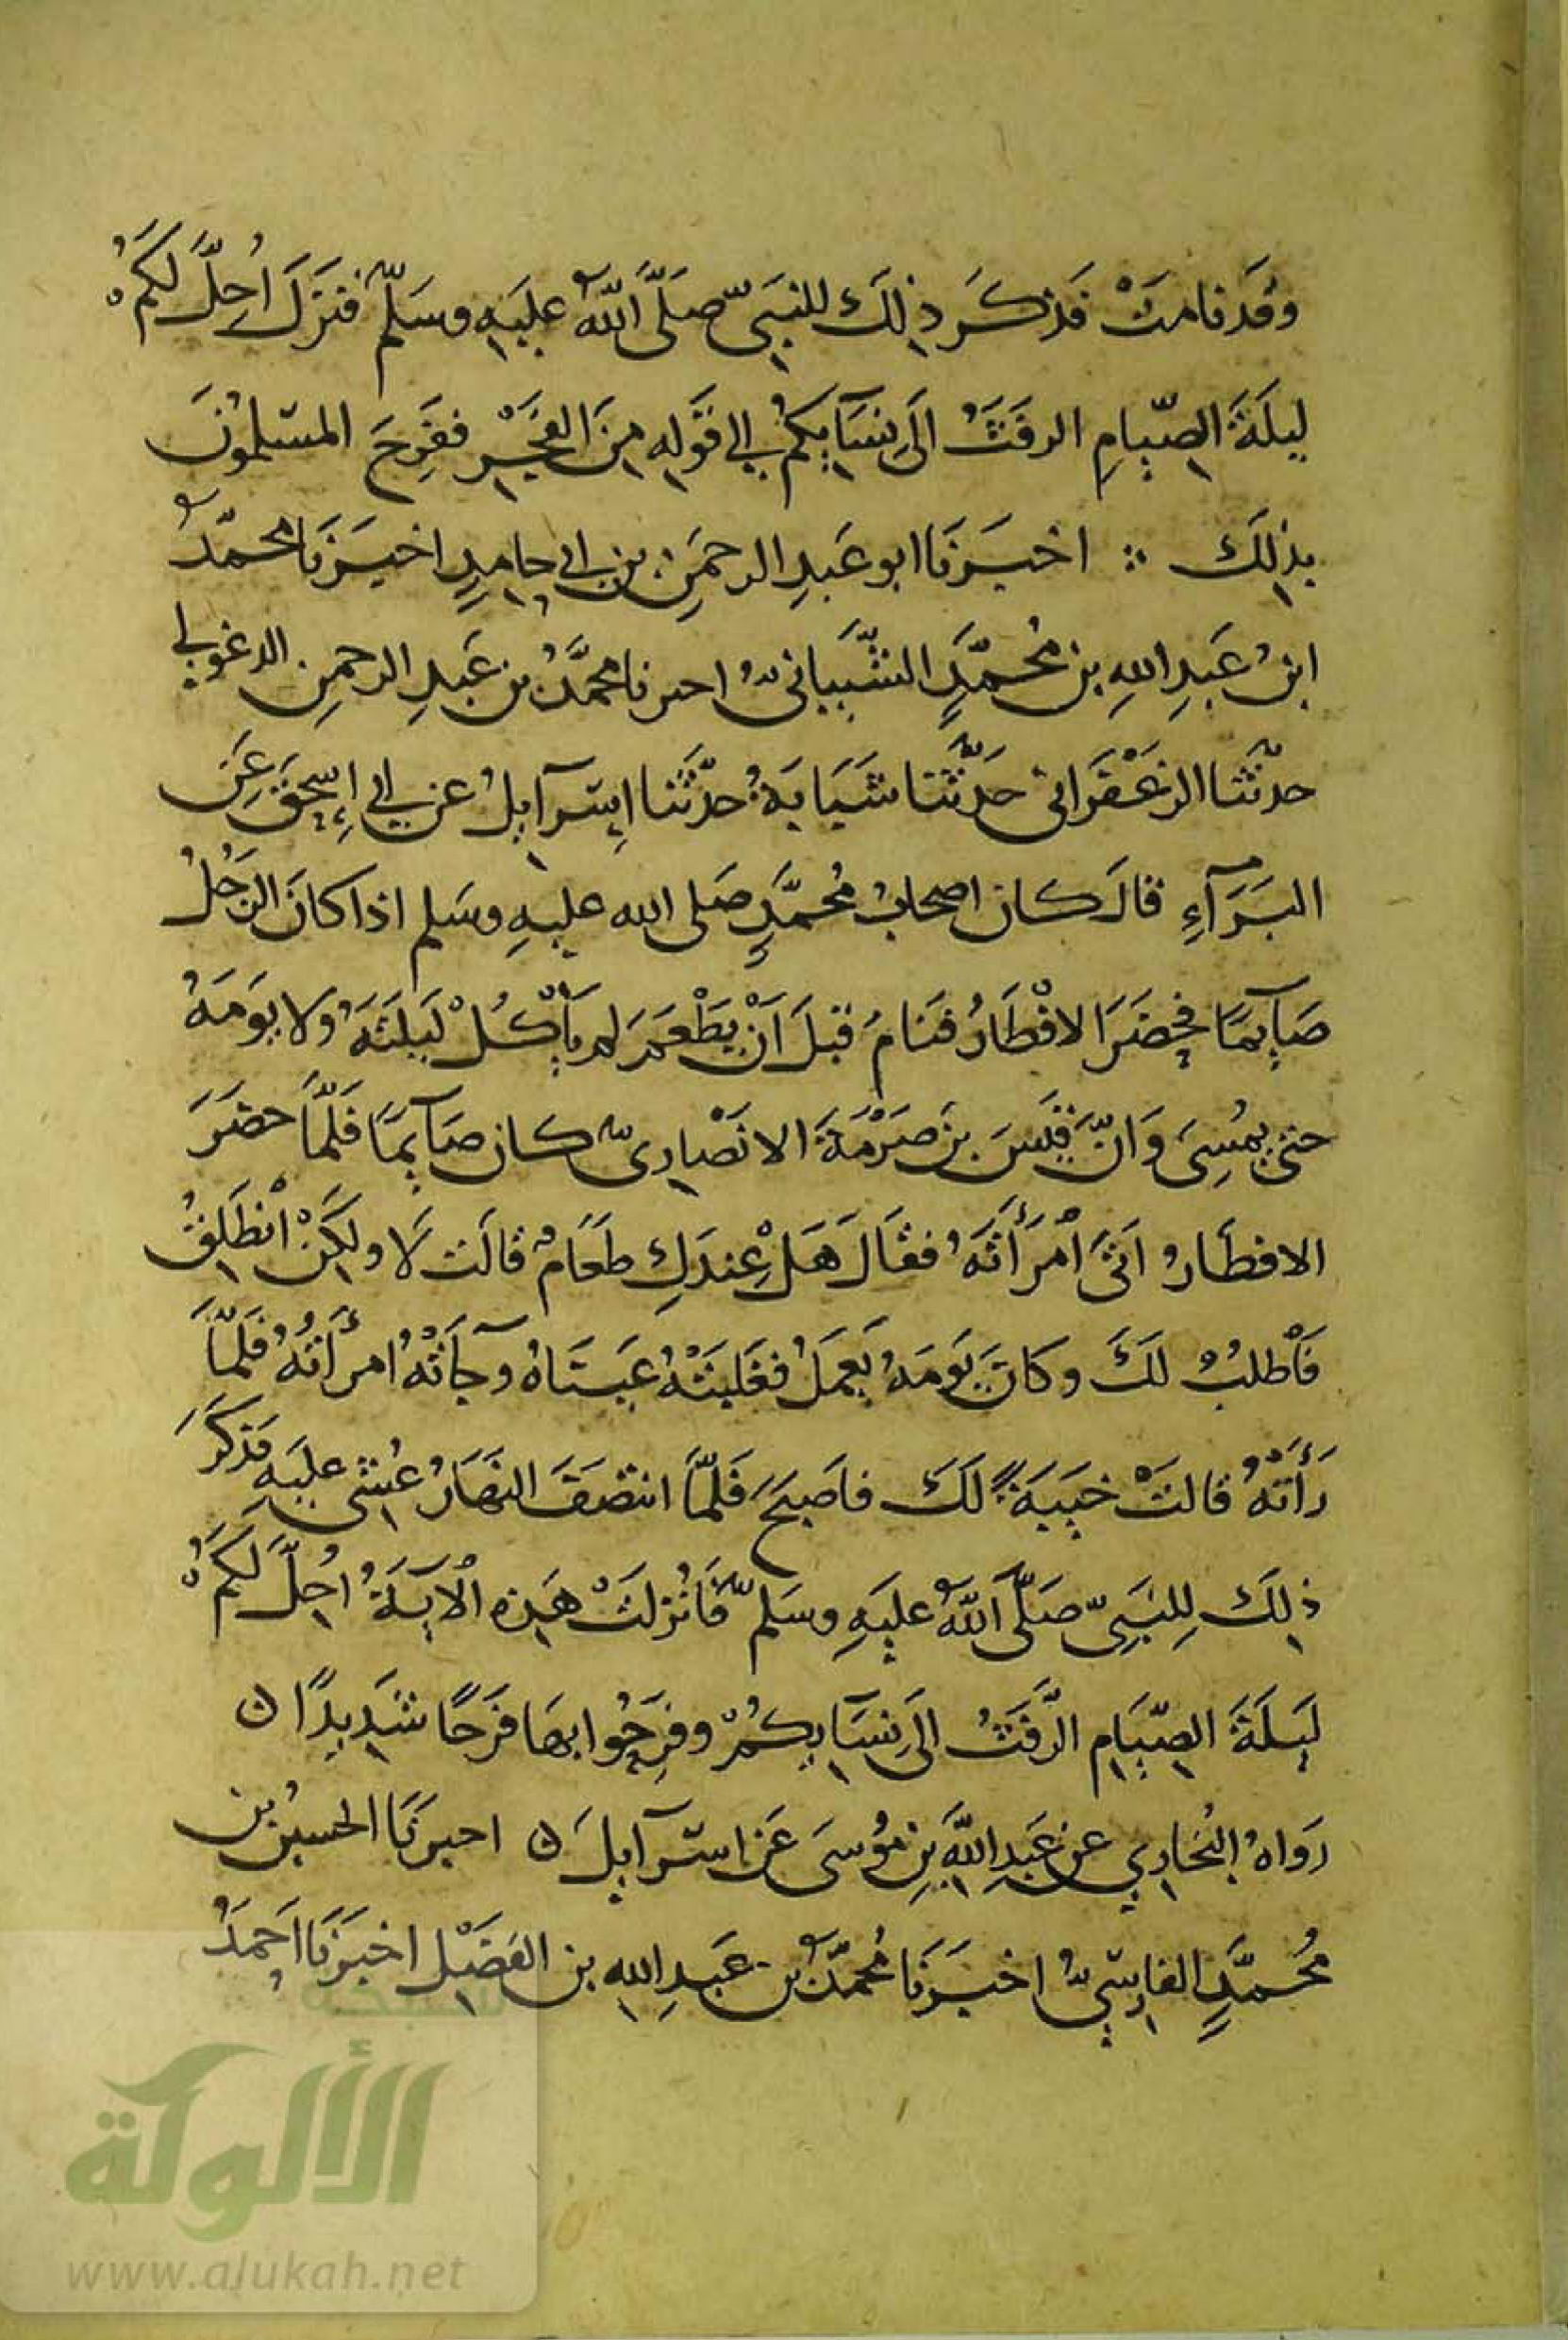 وقَد نامَتْ فَذكَرَ ذٰلكَ للنبَيّ صَلَّى اللّٰهُ عليَهِ وسَلَّم فَنزَلَ اُحِلَّ لَكُمْ
لَيلَةَ الصّيامِ الرفَثُ الَى نِسَآيِكُمْ الى قَوْلِهِ مِنَ الفَجْرِ ففَرِحَ المسْلمُونَ
بذلِكَ ∴ اخبَرَنَا ابو عَبدِ الرحمَنِ بن ابى حامِدٍ اخبَرَنَا محمّدُ
ابنُ عَبدِ اللهِ بن مُحمَّدٍ الشَّيبانىُّ اخبرنا محمَّدُ بن عَبدِ الرحمنِ الدغولى
حدّثنا الزعْفَرانى حَدَّثنا شَبَابَةُ حدّثَنا اِسْرآيلُ عن ابى إِسحٰقَ عَنِ
البَرَآءِ قالَ كان اصحابُ مُحمَّدٍ صَلى الله عليهِ وسَلم اذا كانَ الرَجُلُ
صَآيِمًا فحَضَرَ الافْطَارُ فنَامَ قبلَ اَنْ يَطْعَمَ لم يَأْكُلْ لَيلتَهُ ولا يَومَهُ
حتى يمُسِىَ وَانّ قيَسَ بنَ صِرْمَةَ الانْصَارىّ كان صَآيمًا فَلمَّا حضَرَ
الافطَارُ اتَى اْمرَأَتَهُ فقَالَ هَلْ عِندَكِ طَعَامٌ قالَت لَا ولكِنْ اْنطَلِقُ
فَأْطلُبُ لَكَ وكانَ يَومَهُ يَعمَلُ فغَلبَتْهُ عَيْنَاهُ وجآءَتْهُ امرأَتُهُ فَلمَّا
رَأَتهُ قالتْ خيَبَةً لَكَ فاَصبَحَ فَلمّا انتصَفَ النهَارُ غُشى عليَهِ فذكَرَ
ذٰلِكَ لِلنبَيِّ صَلّى اللّٰهُ عليَهِ وسَلّم فَاُنْزِلَتْ هذِه الْآيَةُ اُحِلَّ لَكُمْ
لَيلَةَ الصّيَامِ الرَّفَثُ الَى نِسَآيِكُمْ وفَرِحُوا بهَا فَرَحًا شَدِيدًا ن
رَواهُ البُخاري عن عَبدِ اللهِ بنِ مُوسَى عَن اسْرآيلَ ن اخبرنَا الحسينُ بن
مُحمَّدٍ الفارسِيُّ اخبَرَنَا مُحمّدُ بن عَبدِ اللهِ بن الفَضْلِ اخبَرَنَا اَحمَدُ
شبكة
الألوكة
www.alukah.net